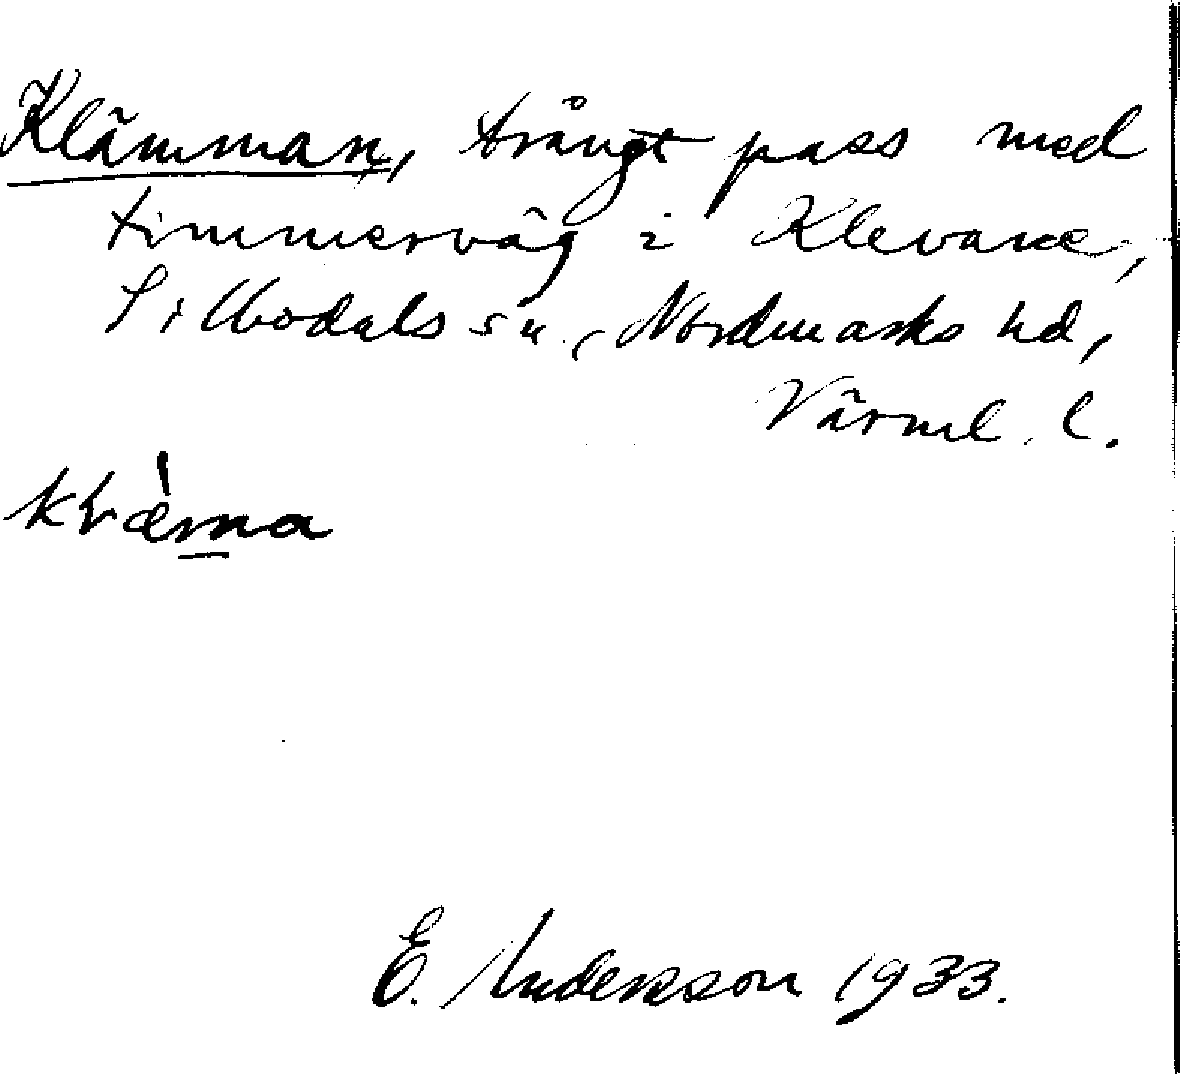 Klämman, trångt pass med
timmerväg i Klevane,
Sillbodals sn, Nordmarks hd,
Värml. l.
E. Andersson 1933.